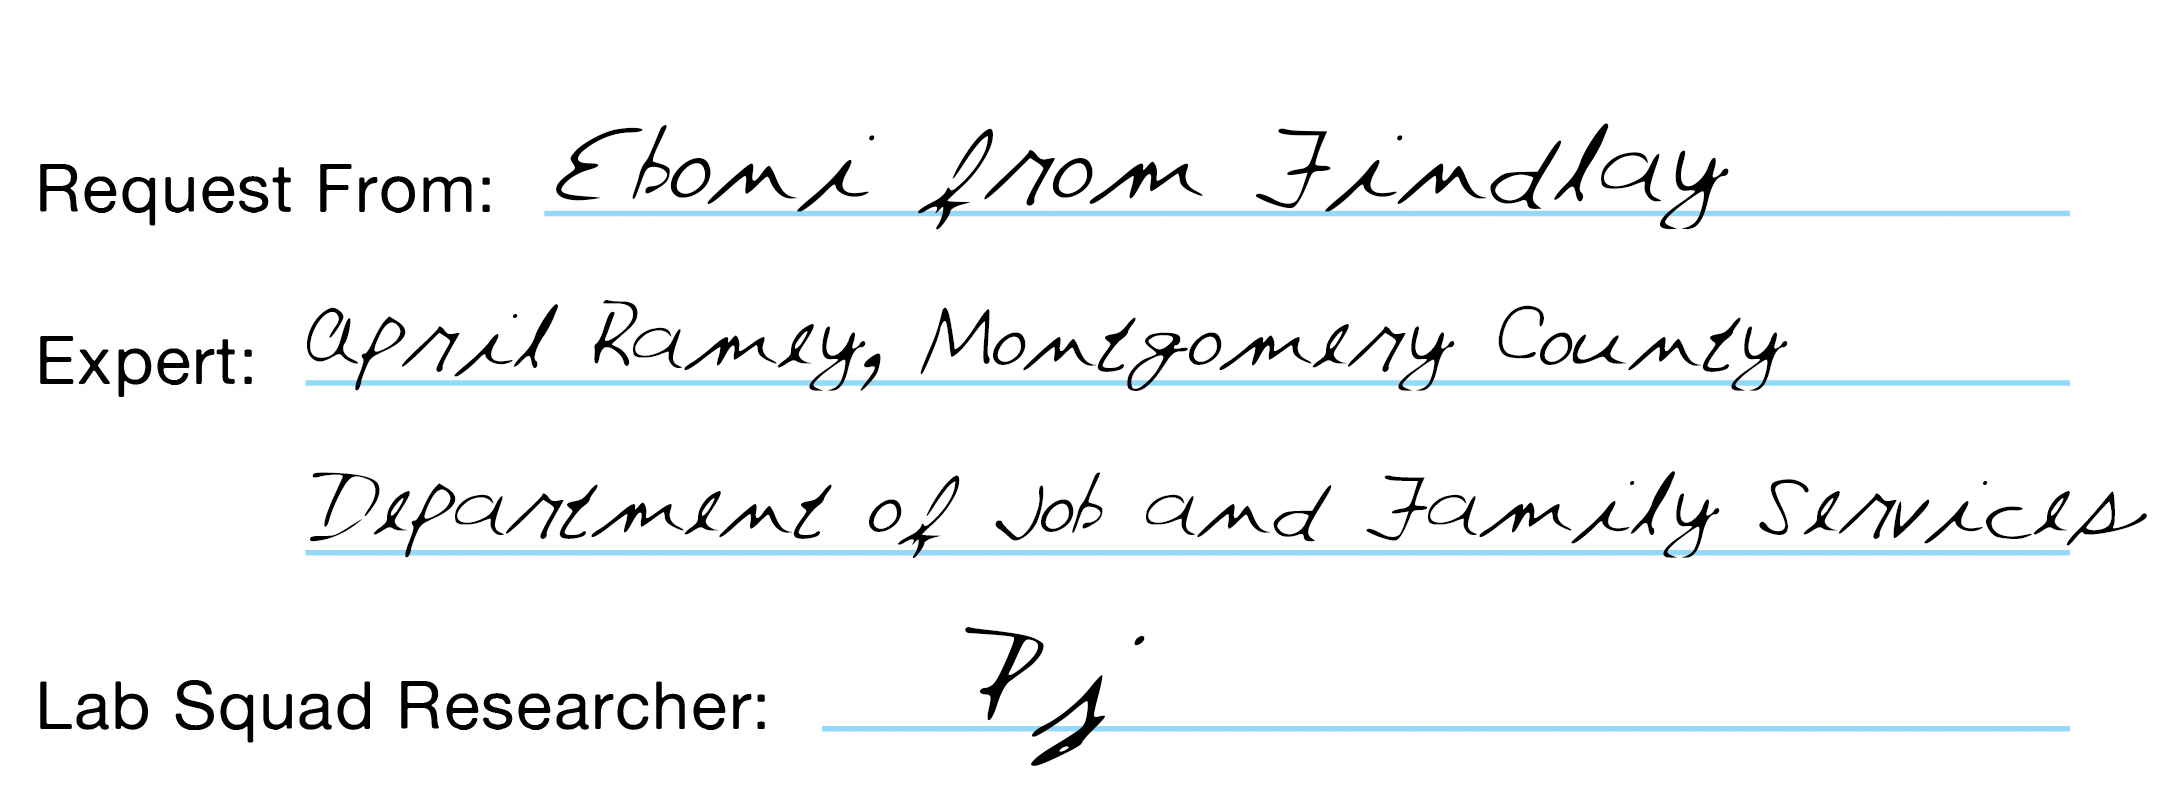 Request From: Eboni from Findlay
Expert: April Ramey, Montgomery County
Department of Job and Family Services
Lab Squad Researcher: Pj